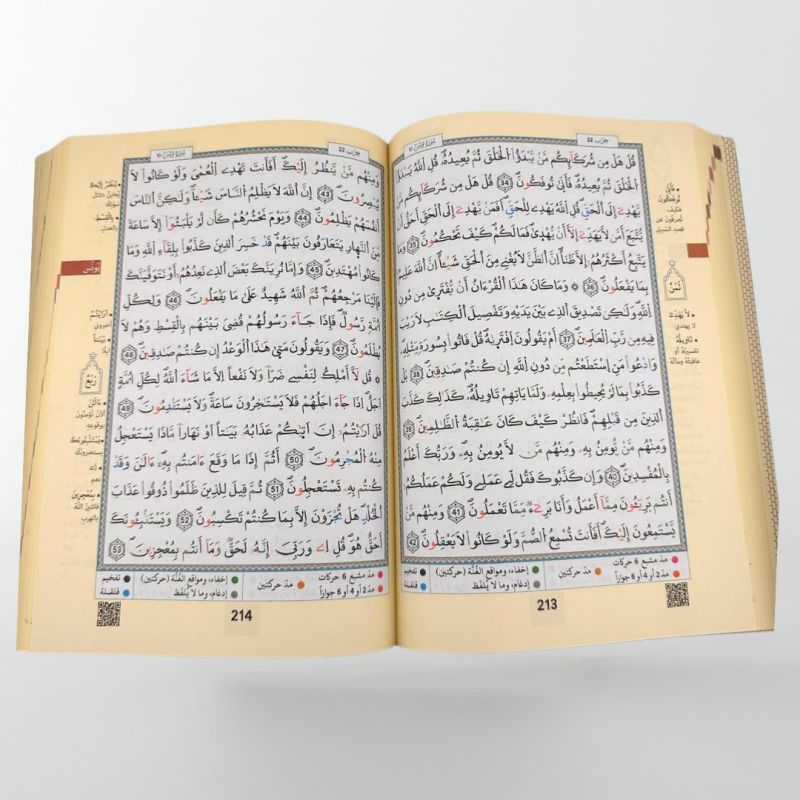 حزب 22
سورة يونس 10
قُلْ هَلْ مِن شُرَكَآئِكُم مَّنْ يَّبْدَؤُاْ الْخَلْقَ ثُمَّ يُعِيدُهُۥ قُلِ اللَّهُ يَبْدَؤُاْ
الْخَلْقَ ثُمَّ يُعِيدُهُۥ فَأَنّىٰ تُوفَكُونَ 34 قُلْ هَلْ مِن شُرَكَآئِكُم مَّنْ
يَّهْدِےٓ إِلَى الْحَقِّ قُلِ اللَّهُ يَهْدِے لِلْحَقِّ أَفَمَنْ يَّهْدِےٓ إِلَى الْحَقِّ أَحَقُّ أَنْ
يُّتَّبَعَ أَمَّن لَّا يَهَدِّےٓ إِلَّآ أَنْ يُّهْدىٰ فَمَا لَكُمْ كَيْفَ تَحْكُمُونَ 35 وَمَا
يَتَّبِعُ أَكْثَرُهُمُۥٓ إِلَّا ظَنّاً اِنَّ الظَّنَّ لَا يُغْنِے مِنَ الْحَقِّ شَيْـٔاً اِنَّ اللَّهَ عَلِيمٌۢ
بِمَا يَفْعَلُونَ 36 ۞ وَمَا كَانَ هَٰذَا الْقُرْءَانُ أَنْ يُّفْتَرىٰ مِن دُونِ
اِللَّهِ وَلَٰكِن تَصْدِيقَ الَّذِے بَيْنَ يَدَيْهِ وَتَفْصِيلَ الْكِتَٰبِ لَا رَيْبَ
فِيهِ مِن رَّبِّ الْعَٰلَمِينَ 37 أَمْ يَقُولُونَ اَفْتَرىٰهُ قُلْ فَاتُواْ بِسُورَةٍ مِّثْلِهِۦ
وَادْعُواْ مَنِ اِسْتَطَعْتُم مِّن دُونِ اِللَّهِ إِن كُنتُمْ صَٰدِقِينَ 38 بَلْ
كَذَّبُواْ بِمَا لَمْ يُحِيطُواْ بِعِلْمِهِۦ وَلَمَّا يَاتِهِمْ تَاوِيلُهُۥ كَذَٰلِكَ كَذَّبَ
الَّذِينَ مِن قَبْلِهِمْ فَانظُرْ كَيْفَ كَانَ عَٰقِبَةُ الظَّٰلِمِينَ 39
وَمِنْهُم مَّنْ يُّومِنُ بِهِۦ وَمِنْهُم مَّن لَّا يُومِنُ بِهِۦ وَرَبُّكَ أَعْلَمُ
بِالْمُفْسِدِينَ 40 وَإِن كَذَّبُوكَ فَقُل لِّے عَمَلِے وَلَكُمْ عَمَلُكُمُۥٓ
أَنتُم بَرِيٓـُٔونَ مِمَّآ أَعْمَلُ وَأَنَا بَرِےٓءٌ مِّمَّا تَعْمَلُونَ 41 وَمِنْهُم مَّنْ
يَّسْتَمِعُونَ إِلَيْكَ أَفَأَنتَ تُسْمِعُ الصُّمَّ وَلَوْ كَانُواْ لَا يَعْقِلُونَ 42
فَأَنّىٰ
تُوفَكُونَ
فكيف
تُصرفون عن
قصد السبيل
ثُمُن
لَّا يَهَدِّے
لا يهتدي
تَاوِيلُهُۥ
تفسيرُه أو
عاقبتُه ومآلُه
مدّ مشبع 6 حركات
مدّ 2 أو 4 أو 6 جوازاً
مدّ حركتين
إخفاء، ومواقع الغُنَّة (حركتين)
إدغام، وما لا يُلفَظ
تفخيم
قلقلة
213
حزب 22
سورة يونس 10
وَمِنْهُم مَّنْ يَّنظُرُ إِلَيْكَ أَفَأَنتَ تَهْدِے الْعُمْيَ وَلَوْ كَانُواْ لَا
يُبْصِرُونَ 43 إِنَّ اللَّهَ لَا يَظْلِمُ النَّاسَ شَيْـٔاً وَلَٰكِنَّ النَّاسَ
أَنفُسَهُمْ يَظْلِمُونَ 44 وَيَوْمَ نَحْشُرُهُمْ كَأَن لَّمْ يَلْبَثُوٓاْ إِلَّا سَاعَةً
مِّنَ النَّهارِ يَتَعَارَفُونَ بَيْنَهُمْ قَدْ خَسِرَ الَّذِينَ كَذَّبُواْ بِلِقَآءِ اِللَّهِ وَمَا
كَانُواْ مُهْتَدِينَ 45 وَإِمَّا نُرِيَنَّكَ بَعْضَ الَّذِے نَعِدُهُمُۥٓ أَوْ نَتَوَفَّيَنَّكَ
فَإِلَيْنَا مَرْجِعُهُمْ ثُمَّ اَللَّهُ شَهِيدٌ عَلَىٰ مَا يَفْعَلُونَ 46 وَلِكُلِّ
أُمَّةٍ رَّسُولٌ فَإِذَا جَآءَ رَسُولُهُمْ قُضِيَ بَيْنَهُم بِالْقِسْطِ وَهُمْ لَا
يُظْلَمُونَ 47 وَيَقُولُونَ مَتىٰ هَٰذَا الْوَعْدُ إِن كُنتُمْ صَٰدِقِينَ 48
۞ قُل لَّآ أَمْلِكُ لِنَفْسِے ضَرّاً وَلَا نَفْعاً اِلَّا مَا شَآءَ اَللَّهُ لِكُلِّ أُمَّةٍ
اَجَلٌ اِذَا جَآءَ اجَلُهُمْ فَلَا يَسْتَٰخِرُونَ سَاعَةً وَلَا يَسْتَقْدِمُونَ 49
قُلَ اَرَٰٓيْتُمُۥٓ إِنَ اَتىٰكُمْ عَذَابُهُۥ بَيَٰتاً اَوْ نَهَاراً مَّاذَا يَسْتَعْجِلُ
مِنْهُ الْمُجْرِمُونَ 50 أَثُمَّ إِذَا مَا وَقَعَ ءَامَنتُم بِهِۦٓ ءَآلَٰنَ وَقَدْ
كُنتُم بِهِۦ تَسْتَعْجِلُونَ 51 ثُمَّ قِيلَ لِلَّذِينَ ظَلَمُواْ ذُوقُواْ عَذَابَ
اَلْخُلْدِ هَلْ تُجْزَوْنَ إِلَّا بِمَا كُنتُمْ تَكْسِبُونَ 52 وَيَسْتَنۢبِـُٔونَكَ
أَحَقٌّ هُوَ قُلِ اِے وَرَبِّيَ إِنَّهُۥ لَحَقٌّ وَمَآ أَنتُم بِمُعْجِزِينَ 53
يَّنظُرُ إِلَيْكَ
بِالْقِسْطِ
بالعدل
يونس
أَرَٰٓيْتُمُۥ
أخبروني
بَيَٰتاً
ليلاً
رُبُع
ءَآلَٰنَ
آلآن تؤمنون
بوقوعه
يَسْتَنۢبِـُٔونَكَ
يستخبرونك
اِے
نعم
بِمُعْجِزِينَ
فائتين الله
بالهرب
مدّ مشبع 6 حركات
مدّ 2 أو 4 أو 6 جوازاً
مدّ حركتين
إخفاء، ومواقع الغُنَّة (حركتين)
إدغام، وما لا يُلفَظ
تفخيم
قلقلة
214